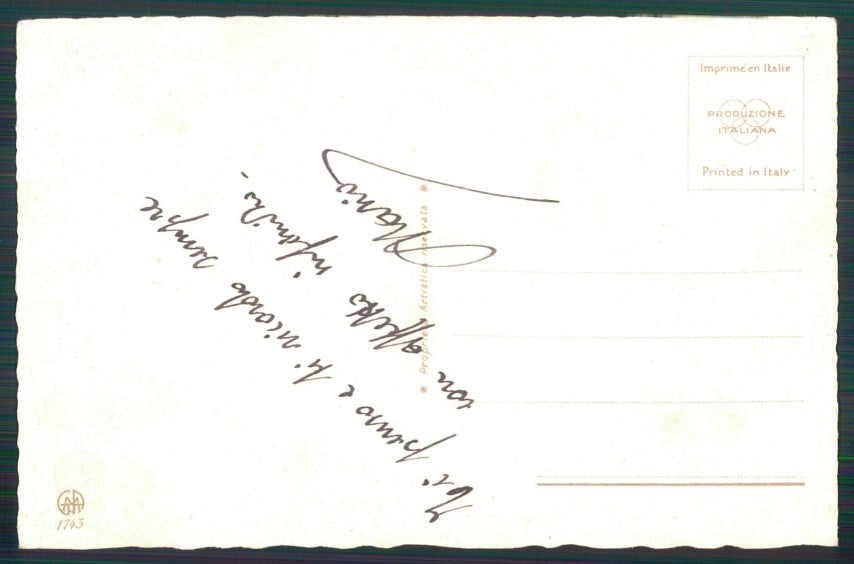 Imprimé en Italie
PRODUZIONE
ITALIANA
Printed in Italy
Ti penso e ti ricordo sempre
con affetto infinito.
Mario
Proprietà Artistica riservata
1743